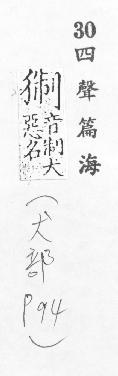 30四聲篇海
猘音制犬
惡名
(犬部
P94)